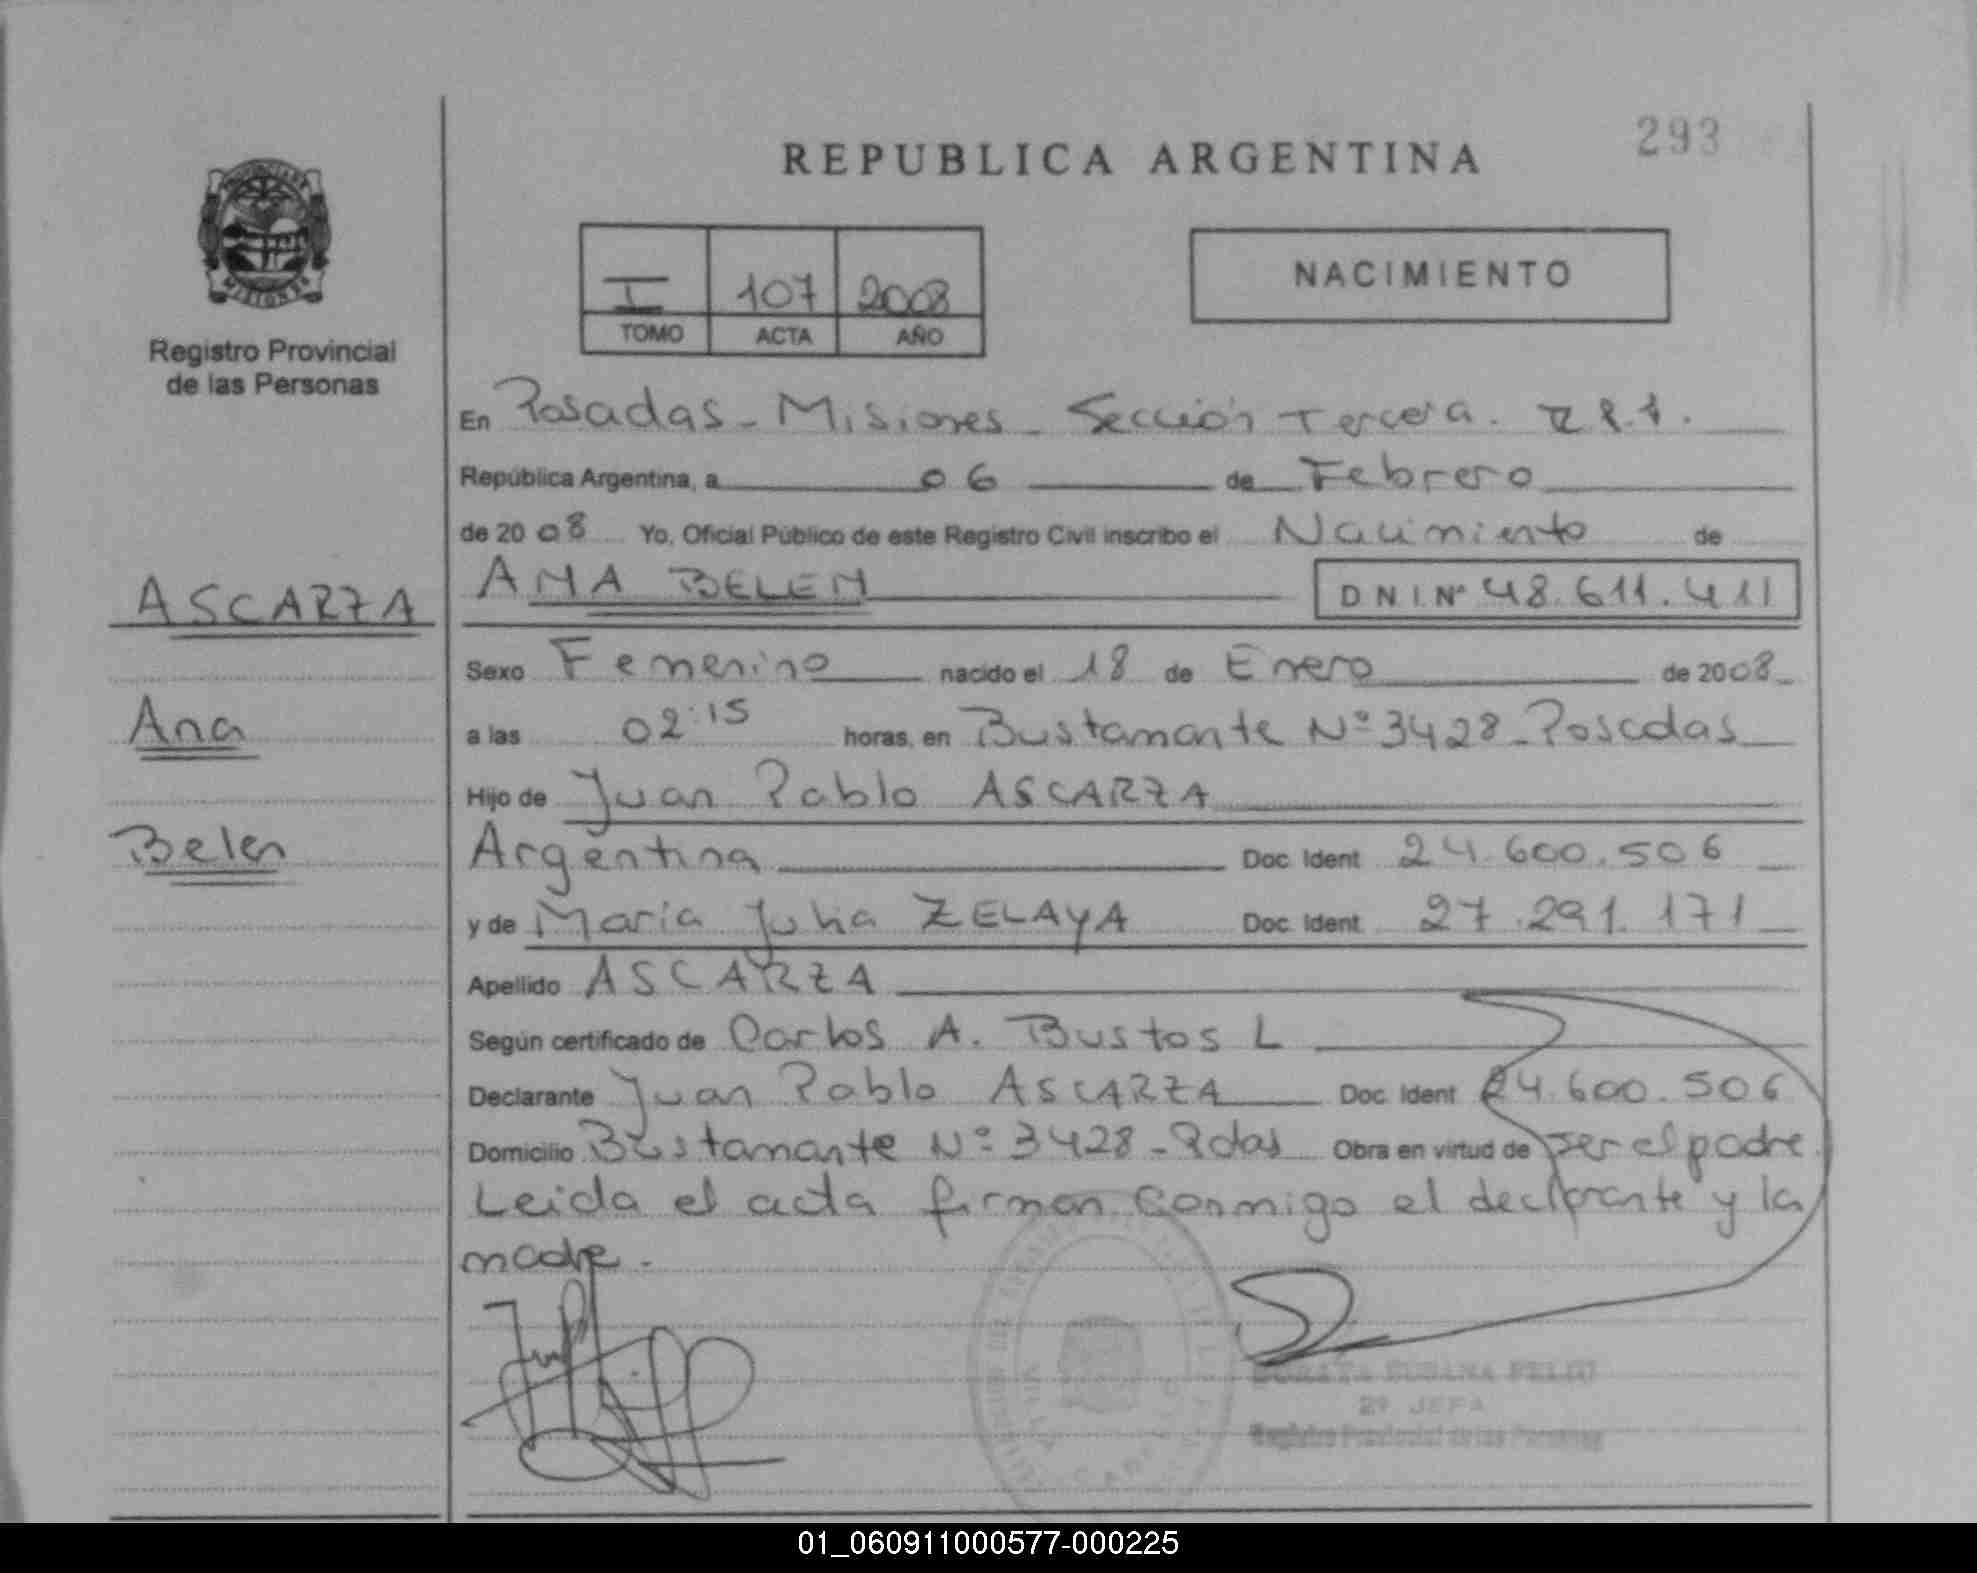 293
REPUBLICA ARGENTINA
MISIONES
I 107 2008
TOMO ACTA AÑO
NACIMIENTO
Registro Provincial
de las Personas
ASCARZA
Ana
Belen
En Posadas - Misiones - Sección Tercera.
República Argentina, a 06 de Febrero
de 2008 Yo, Oficial Público de este Registro Civil inscribo el Nacimiento de
ANA BELEN DNI Nº 48.611.411
Sexo Femenino nacido el 18 de Enero de 2008
a las 02:15 horas, en Bustamante Nº 3428 - Posadas
Hijo de Juan Pablo ASCARZA
Argentina Doc. Ident 24.600.506
y de Maria Julia ZELAYA Doc. Ident 27.291.171
Apellido ASCARZA
Según certificado de Carlos A. Bustos L
Declarante Juan Pablo ASCARZA Doc. Ident 24.600.506
Domicilio Bustamante Nº 3428 - Pdas Obra en virtud de ser el padre
Leida el acta firman conmigo el declarante y la
madre.
2º JEFA
Registro Provincial de las Personas
01_060911000577-000225